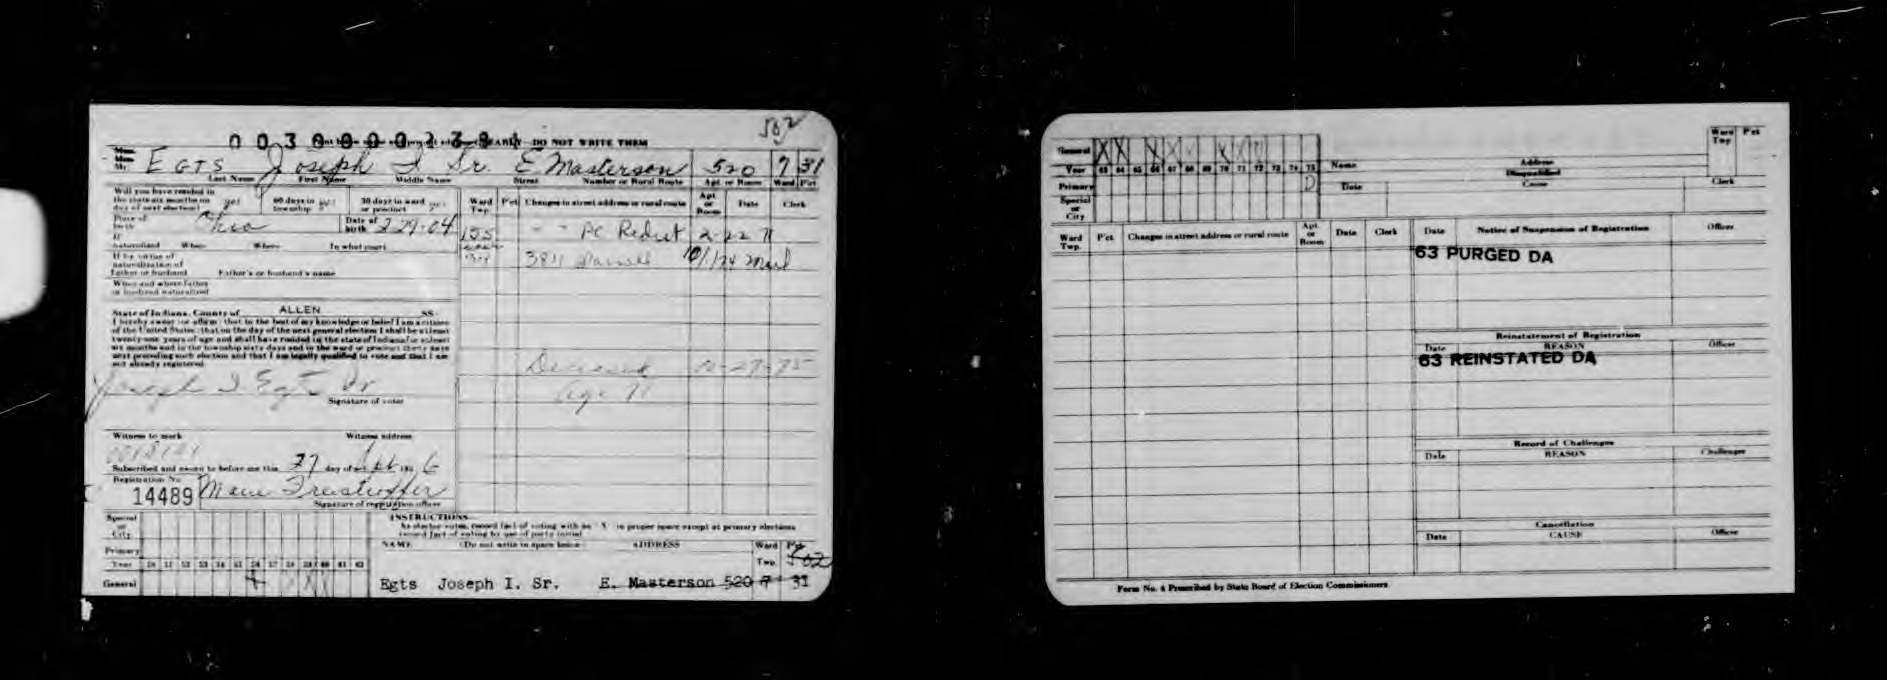 502
Print below name and DO NOT WRITE THEM
Mrs.
Miss
Mr. Egts Joseph I Sr. E Masterson 520 7 31
Last Name First Name Middle Name Street Number or Rural Route Apt. or Room Ward P'ct
Will you have resided in the state six months on day of next election? yes 60 days in township yes 30 days in ward or precinct
Place of birth Ohio Date of birth 2-29-04
If naturalized When Where In what court
If by virtue of naturalization of father or husband Father's or husband's name
When and where father or husband naturalized
State of Indiana, County of ALLEN SS
I hereby swear (or affirm) that to the best of my knowledge or belief I am a citizen
of the United States; that on the day of the next general election I shall be at least
twenty-one years of age and shall have resided in the state of Indiana for at least
six months and in the township sixty days and in the ward or precinct thirty days
next preceding such election and that I am legally qualified to vote and that I am
not already registered.
Joseph I Egts Sr
Signature of voter
Witness to mark Witness address
Subscribed and sworn to before me this 27 day of Sept 195 6
Registration No.
14489
Signature of registration officer
Ward Twp. P'ct Changes in street address or rural route Apt or Room Date Clerk
155 " " PC Redist 2-22-71
3811
Deceased 10-27-75
age 71
Special or City
Primary
Year 50 51 52 53 54 55 56 57 58 59 60 61 62
General
INSTRUCTIONS
As elector votes, record fact of voting with an "X" in proper space except at primary elections
record fact of voting by use of party initial
NAME (Do not write in space below) ADDRESS Ward Twp. P'ct
502
Egts Joseph I. Sr. E. Masterson 520 7 31
General X X X X X X X X
Year 63 64 65 66 67 68 69 70 71 72 73 74 75
Primary D
Special or City
Name Address Ward Twp P'ct
Disqualified
Date Cause Clerk
Ward Twp. P'ct Changes in street address or rural route Apt or Room Date Clerk
Date Notice of Suspension of Registration Officer
63 PURGED DA
Reinstatement of Registration
Date REASON Officer
63 REINSTATED DA
Record of Challenges
Date REASON Challenger
Cancellation
Date CAUSE Officer
Form No. 4 Prescribed by State Board of Election Commissioners